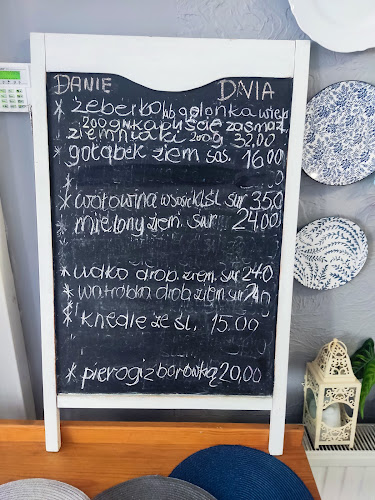 DANIE DNIA
* żeberko lub golonka wiep
200g kapuście zasmaż.
ziemniaki 200g 32,00
* gołąbek ziem sos. 16 00
*
* wołowina w sosie kl.śl. sur 35,0
* mielony ziem. sur 24.00
* udko drob. ziem. sur 24,0
* wątróbka drob. ziem sur
* knedle ze śl, 15.00
* pierogi z borówką 20,00